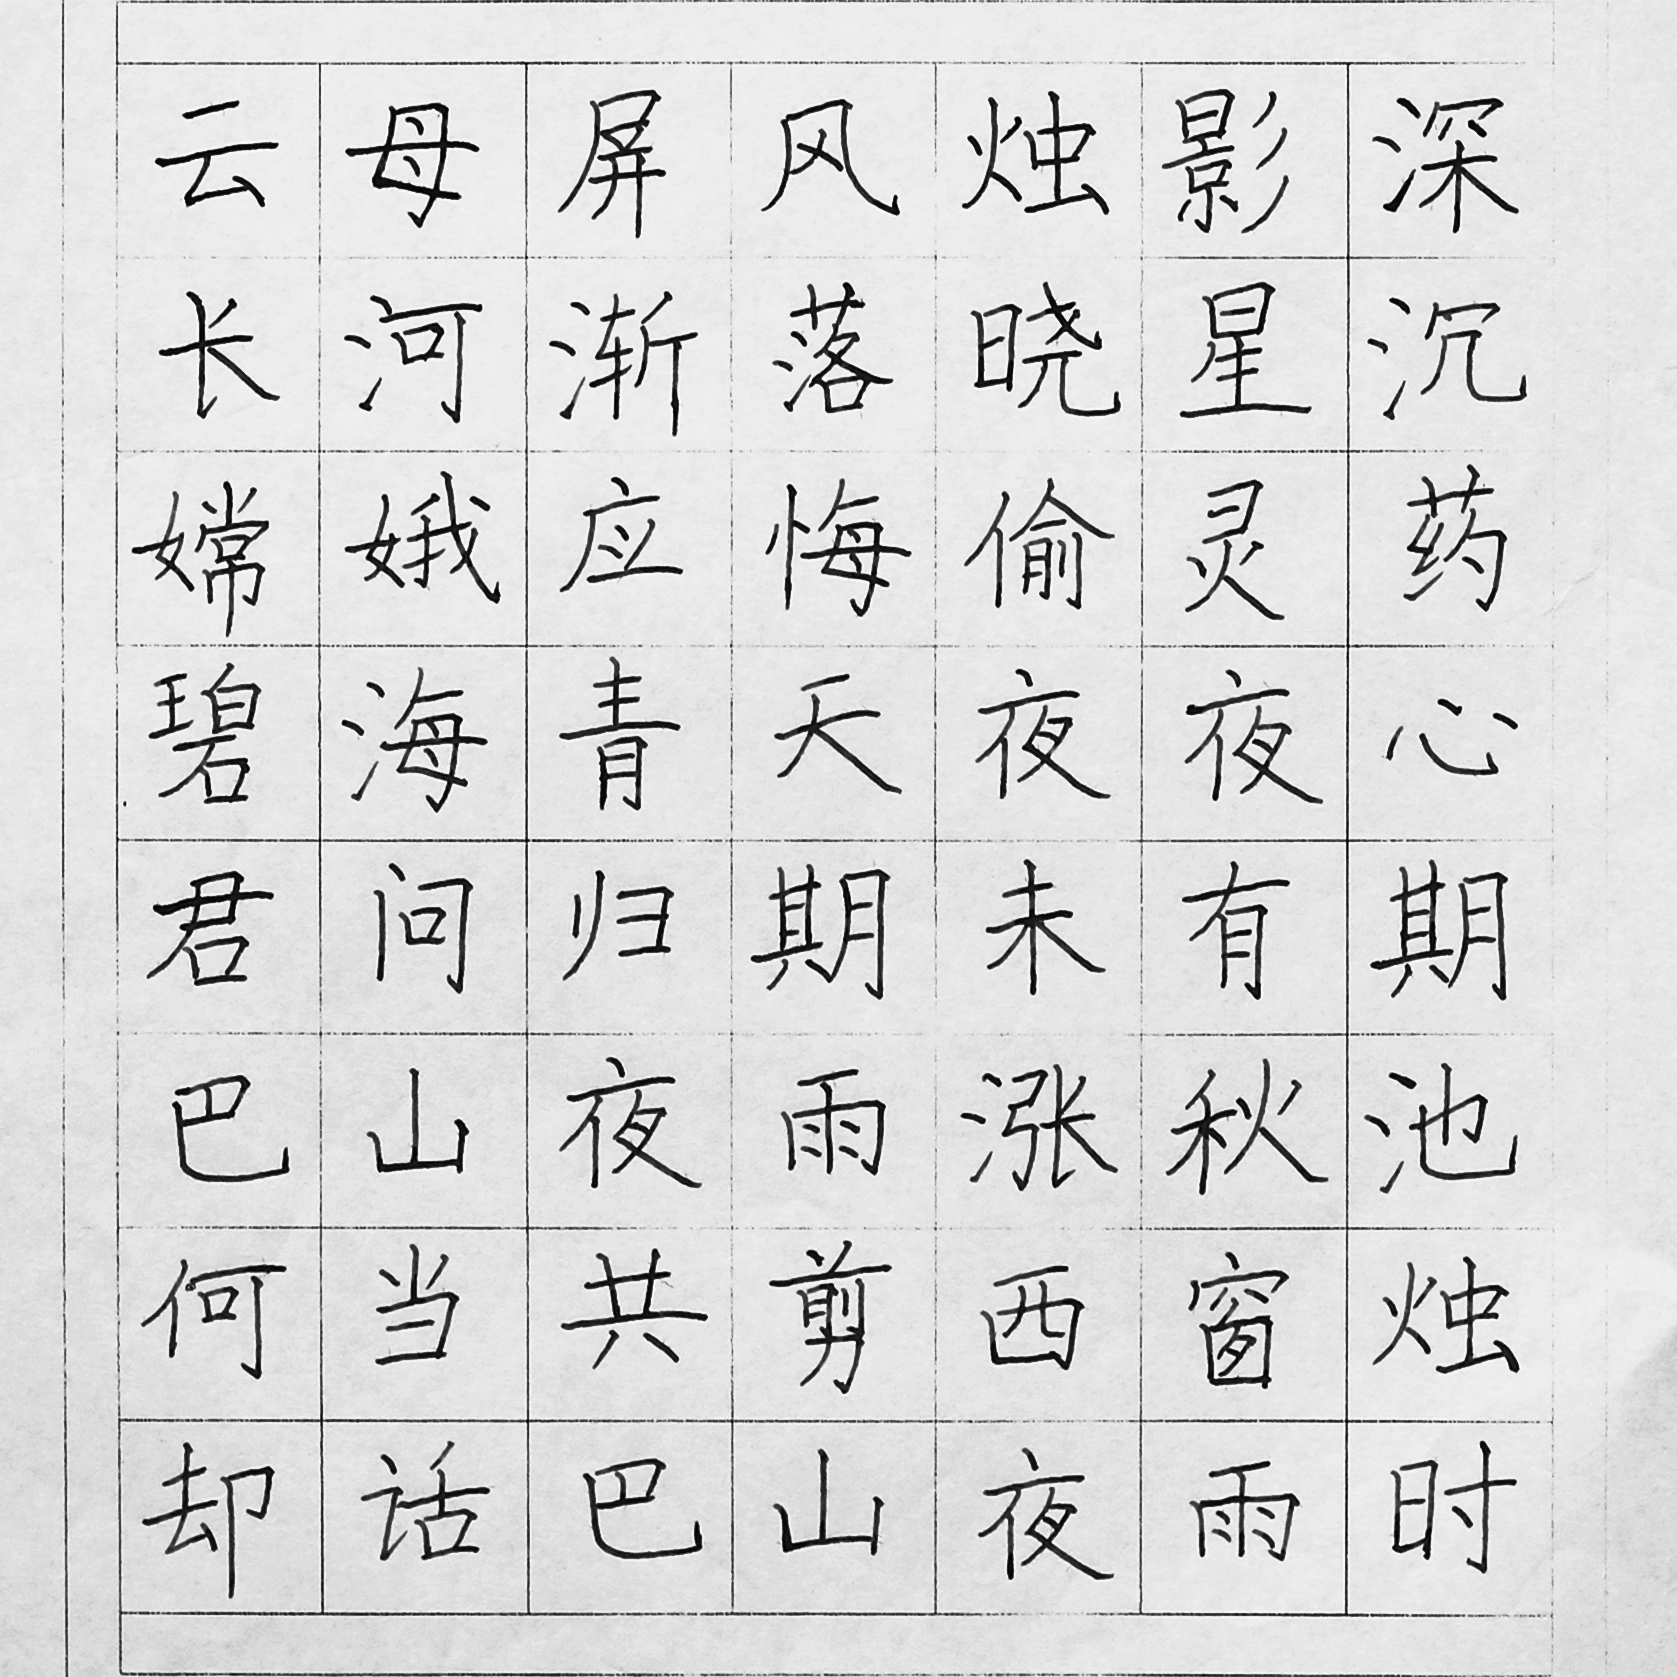 云母屏风烛影深
长河渐落晓星沉
嫦娥应悔偷灵药
碧海青天夜夜心
君问归期未有期
巴山夜雨涨秋池
何当共剪西窗烛
却话巴山夜雨时